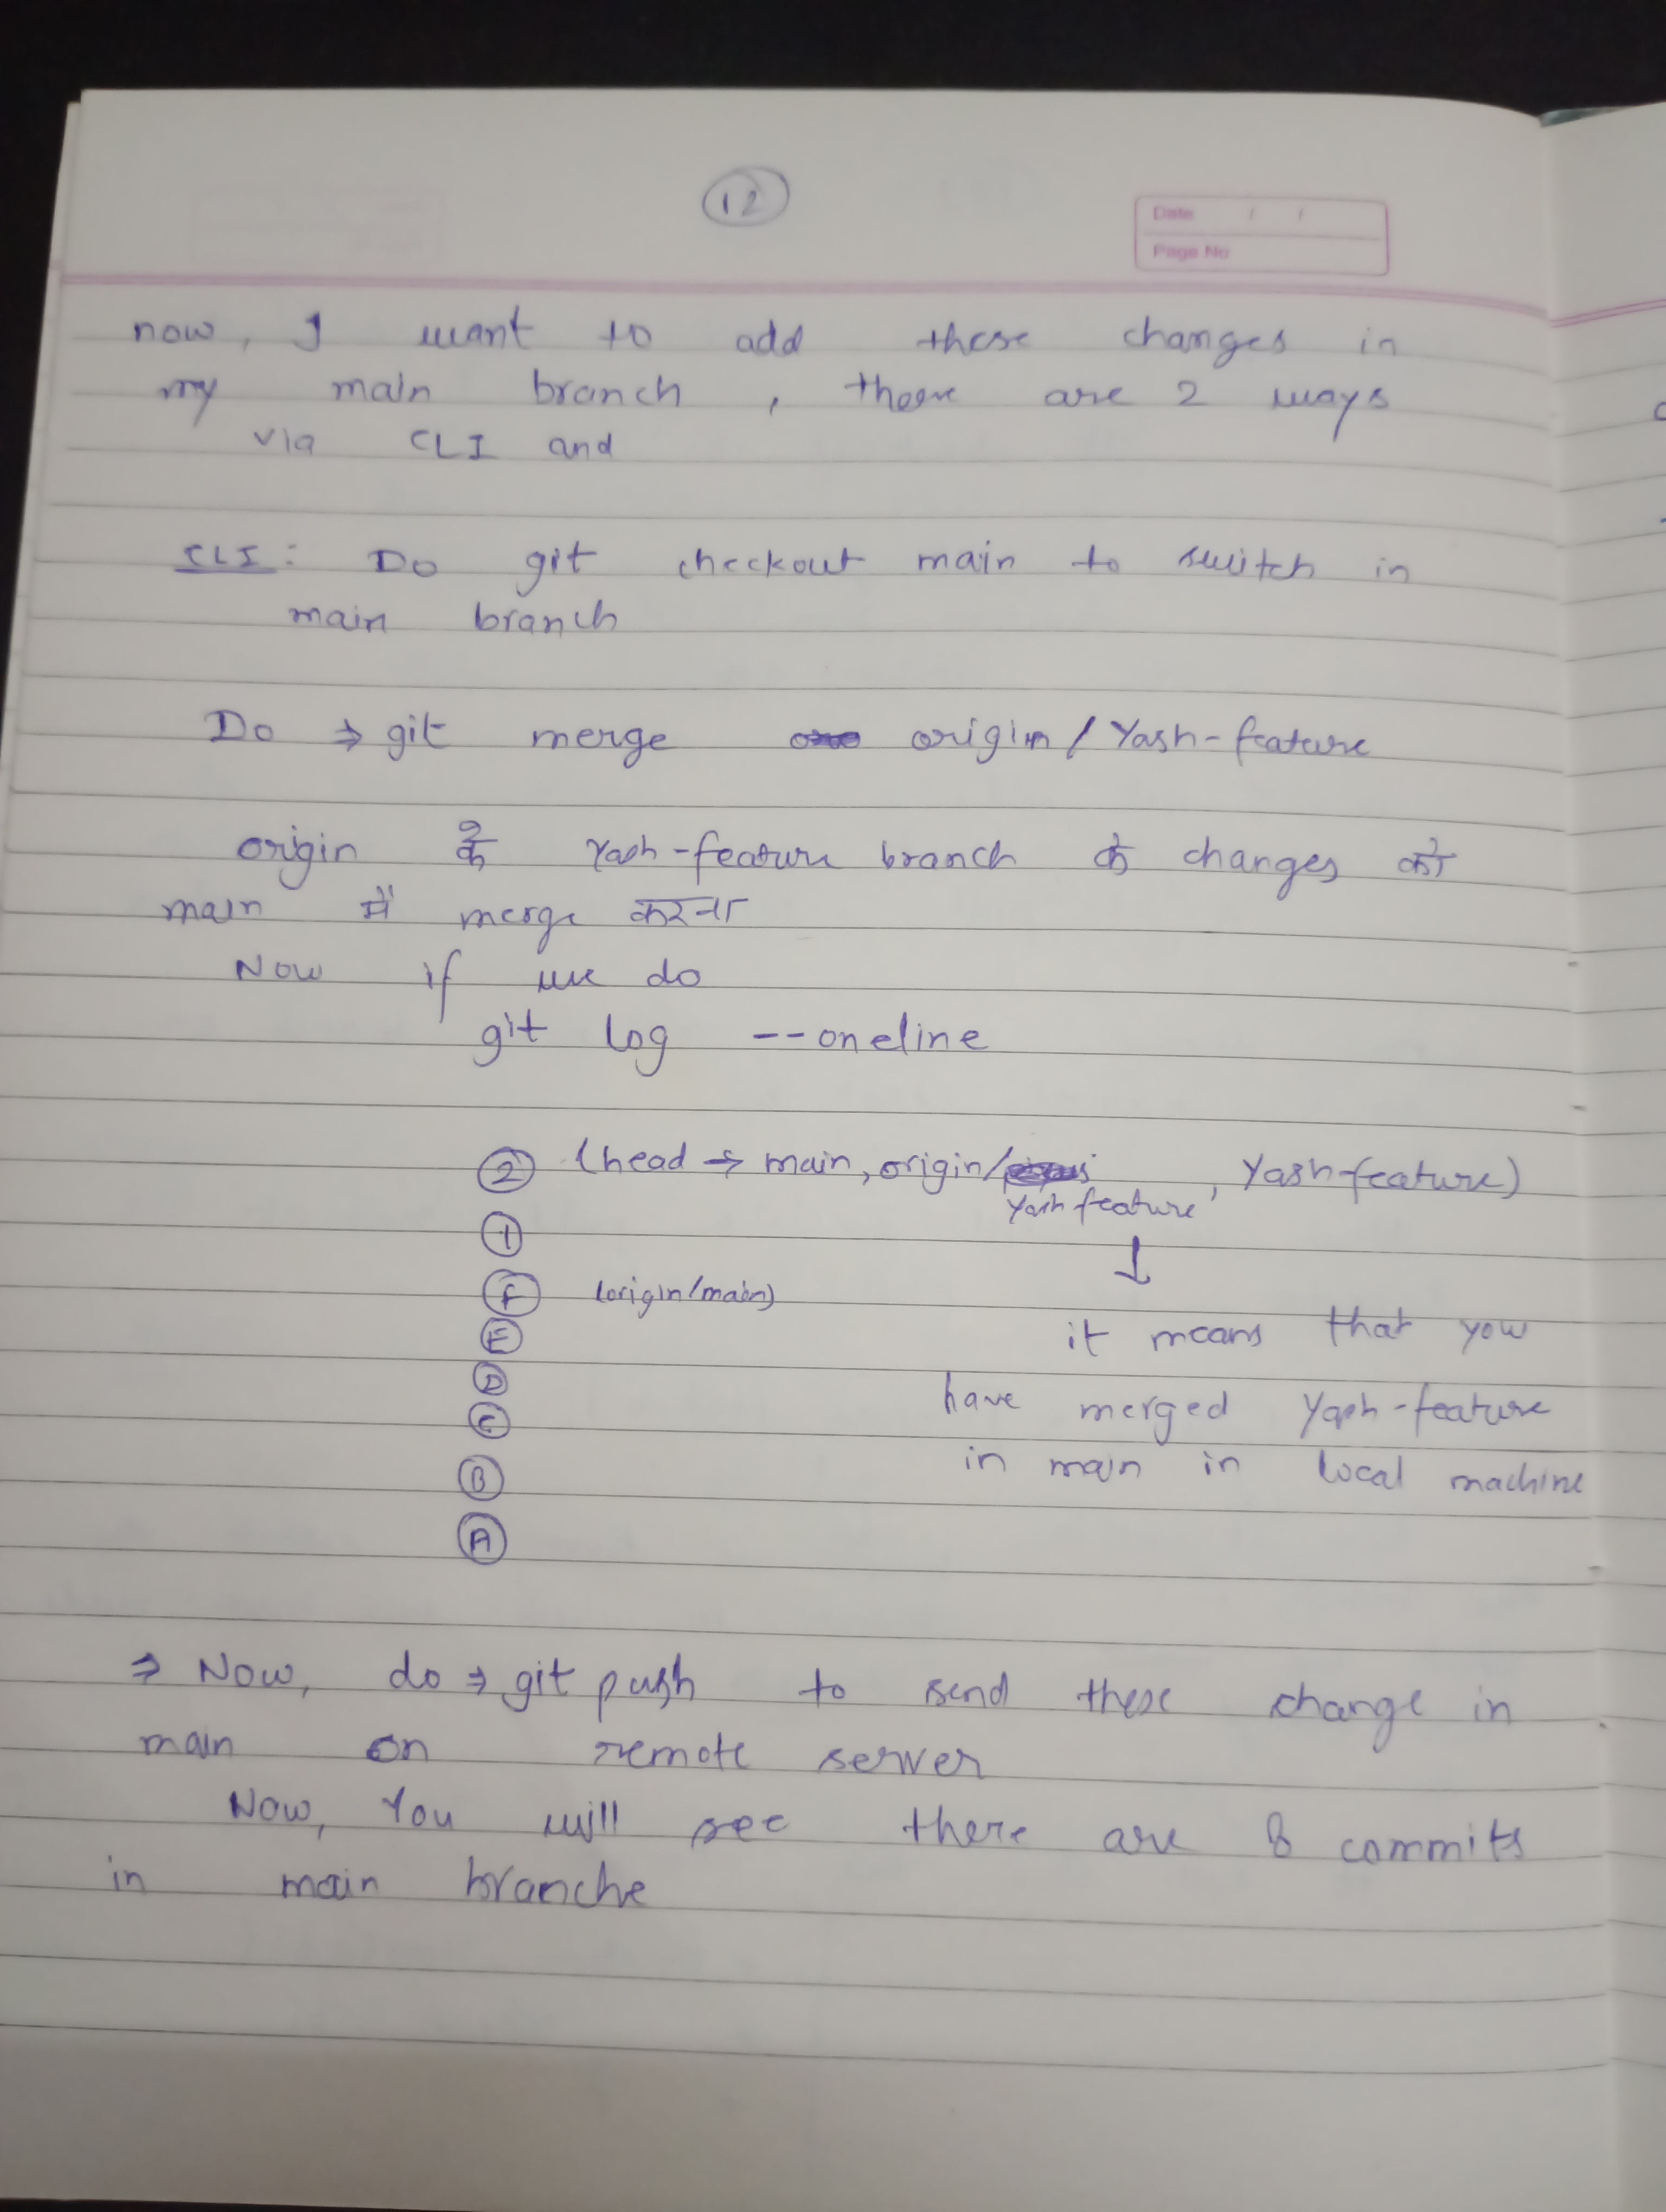 12
Date / /
Page No
now, I want to add these changes in
my main branch , there are 2 ways
via CLI and
CLI: Do git checkout main to switch in
main branch
Do ⇒ git merge origin / Yash-feature
origin के Yash-feature branch के changes को
main में merge करना
Now if we do
git log --oneline
② (head → main, origin/ Yash feature , Yash-feature)
①
Ⓕ (origin/main)
Ⓔ
Ⓓ
Ⓒ
Ⓑ
Ⓐ
↓
it means that you
have merged Yash-feature
in main in local machine
⇒ Now, do ⇒ git push to send these change in
main on remote server
Now, You will see there are 8 commits
in main branche